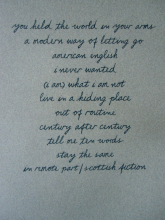 you held the world in your arms
a modern way of letting go
american english
i never wanted
(i am) what i am not
live in a hiding place
out of routine
century after century
tell me ten words
stay the same
in remote part / scottish fiction